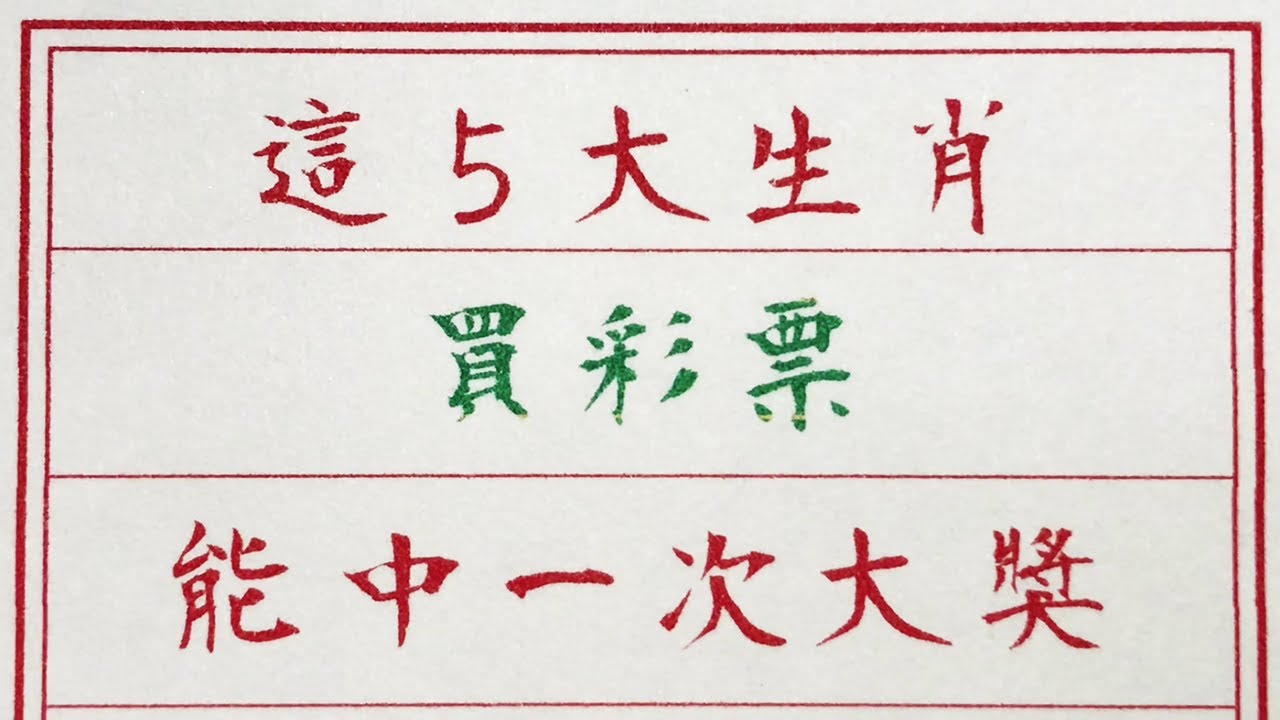 這5大生肖
買彩票
能中一次大獎